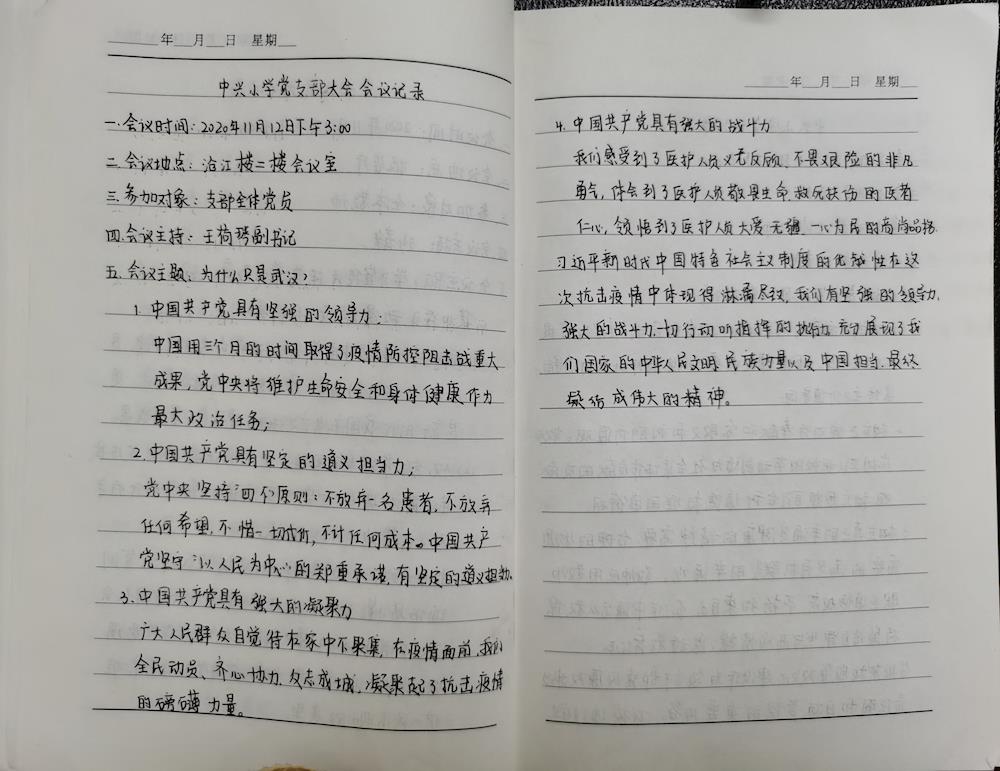 年 月 日 星期
中兴小学党支部大会会议记录
一.会议时间：2020年11月12日下午3:00
二.会议地点：沿江楼二楼会议室
三.参加对象：支部全体党员
四.会议主持：王荷琴副书记
五.会议主题：为什么只是武汉？
1.中国共产党具有坚强的领导力；
中国用三个月的时间取得了疫情防控阻击战重大
成果，党中央将维护生命安全和身体健康作为
最大政治任务；
2.中国共产党具有坚定的道义担当力；
党中央坚持“四不”原则：不放弃一名患者，不放弃
任何希望，不惜一切代价，不计任何成本。中国共产
党坚守“以人民为中心”的郑重承诺，有坚定的道义担当力。
3.中国共产党具有强大的凝聚力
广大人民群众自觉待在家中不聚集，在疫情面前，我们
全民动员、齐心协力，众志成城，凝聚起了抗击疫情
的磅礴力量。
年 月 日 星期
4.中国共产党具有强大的战斗力
我们感受到了医护人员义无反顾、不畏艰险的非凡
勇气，体会到了医护人员敬畏生命，救死扶伤的医者
仁心，领悟到了医护人员大爱无疆，一心为民的高尚品格.
习近平新时代中国特色社会主义制度的优越性在这
次抗击疫情中体现得淋漓尽致，我们有坚强的领导力，
强大的战斗力，一切行动听指挥的执行力，充分展现了我
们国家的中华人民文明，民族力量以及中国担当，最终
凝结成伟大的精神。